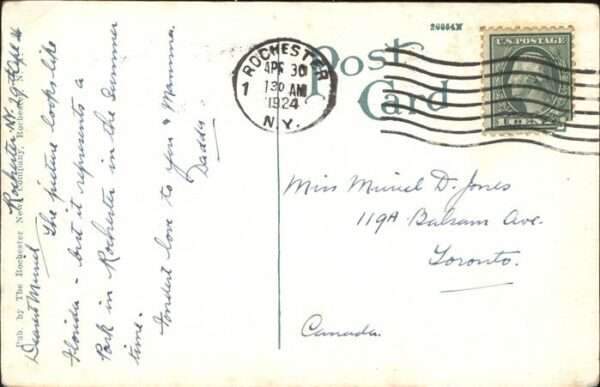 26664N
Post
Card
U.S. POSTAGE
ROCHESTER
APR 30
1
1 30 AM
1924
N.Y.
Miss Muriel D. Jones
119A Balsam Ave.
Toronto.
Canada.
Pub. by The Rochester News Company, Rochester
Rochester N.Y. 29th Apr
Dearest Muriel
The picture looks like
Florida - but it represents a
Park in Rochester in the Summer
time.
Fondest love to you & Mamma.
Daddy.